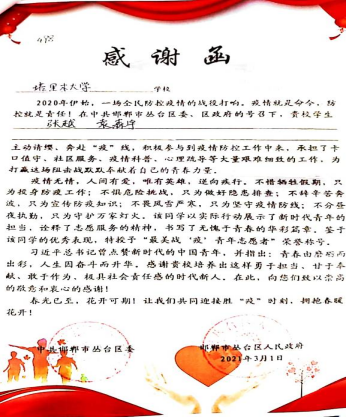 感谢函
塔里木大学 学校
2020年伊始，一场全民防控疫情的战役打响。疫情就是命令，防
控就是责任！在中共邯郸市丛台区委、区政府的号召下，贵校学生
主动请缨，奔赴“疫”线，积极参与到疫情防控工作中来，承担了卡
口值守、社区服务、疫情科普、心理疏导等大量艰难细致的工作，为
打赢这场阻击战默默奉献着自己的青春力量。
疫情无情，人间有爱，唯有英雄，逆向疾行。不惜牺牲假期，只
为投身防疫工作；不惧危险挑战，只为做好隐患排查；不辞辛劳奔
波，只为宣传防疫知识；不畏风雪严寒，只为坚守疫情防线；不分昼
夜执勤，只为守护万家灯火。该同学以实际行动展示了新时代青年的
担当、诠释了志愿服务的精神，书写了无愧于青春的华彩篇章。鉴于
该同学的优秀表现，特授予“最美战‘疫’青年志愿者”荣誉称号。
习近平总书记曾点赞新时代的中国青年，并指出：青春由磨砺而
出彩，人生因奋斗而升华。感谢贵校培养出这样勇于担当、甘于奉
献、敢于作为、极具社会责任感的时代新人。在此，向您们致以崇高
的敬意和衷心的感谢！
春光已至，花开可期！让我们共同迎接胜“疫”时刻，拥抱春暖
花开！
中共邯郸市丛台区委 邯郸市丛台区人民政府
2021年3月1日